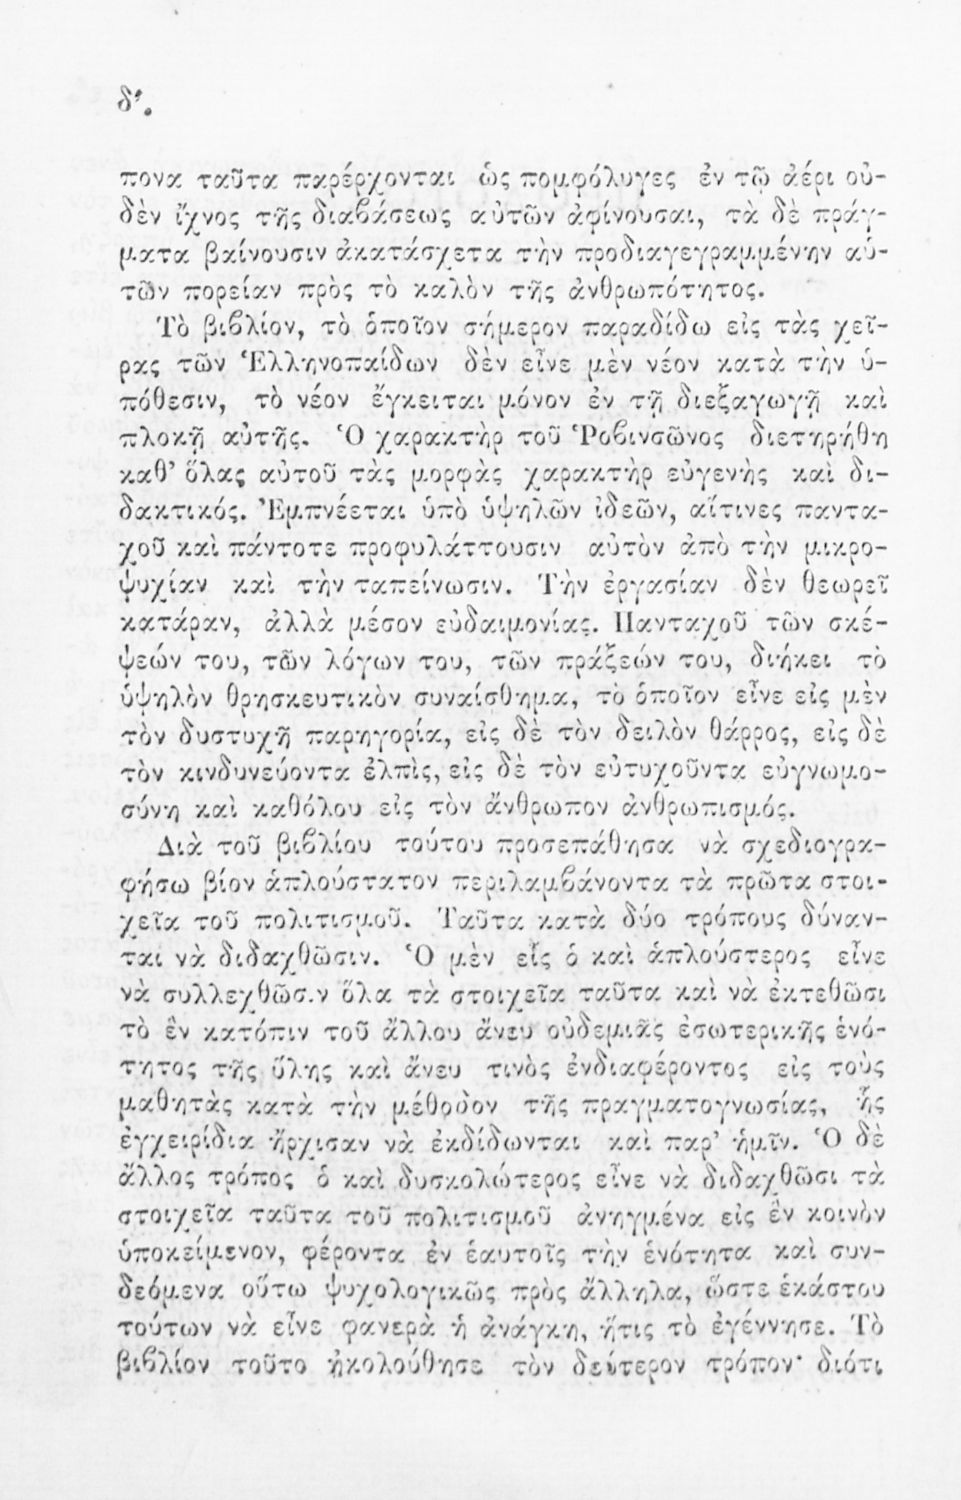 δ′.
πονα ταῦτα παρέρχονται ὡς πομφόλυγες ἐν τῷ ἀέρι οὐ-
δὲν ἴχνος τῆς διαβάσεως αὐτῶν ἀφίνουσαι, τὰ δὲ πράγ-
ματα βαίνουσιν ἀκατάσχετα τὴν προδιαγεγραμμένην αὐ-
τῶν πορείαν πρὸς τὸ καλὸν τῆς ἀνθρωπότητος.
Τὸ βιβλίον, τὸ ὁποῖον σήμερον παραδίδω εἰς τὰς χεῖ-
ρας τῶν Ἑλληνοπαίδων δὲν εἶνε μὲν νέον κατὰ τὴν ὑ-
πόθεσιν, τὸ νέον ἔγκειται μόνον ἐν τῇ διεξαγωγῇ καὶ
πλοκῇ αὐτῆς. Ὁ χαρακτὴρ τοῦ Ῥοβινσῶνος διετηρήθη
καθ’ ὅλας αὐτοῦ τὰς μορφὰς χαρακτὴρ εὐγενὴς καὶ δι-
δακτικός. Ἐμπνέεται ὑπὸ ὑψηλῶν ἰδεῶν, αἵτινες παντα-
χοῦ καὶ πάντοτε προφυλάττουσιν αὐτὸν ἀπὸ τὴν μικρο-
ψυχίαν καὶ τὴν ταπείνωσιν. Τὴν ἐργασίαν δὲν θεωρεῖ
κατάραν, ἀλλὰ μέσον εὐδαιμονίας. Πανταχοῦ τῶν σκέ-
ψεών του, τῶν λόγων του, τῶν πράξεών του, διήκει τὸ
ὑψηλὸν θρησκευτικὸν συναίσθημα, τὸ ὁποῖον εἶνε εἰς μὲν
τὸν δυστυχῆ παρηγορία, εἰς δὲ τὸν δειλὸν θάρρος, εἰς δὲ
τὸν κινδυνεύοντα ἐλπὶς, εἰς δὲ τὸν εὐτυχοῦντα εὐγνωμο-
σύνη καὶ καθόλου εἰς τὸν ἄνθρωπον ἀνθρωπισμός.
Διὰ τοῦ βιβλίου τούτου προσεπάθησα νὰ σχεδιογρα-
φήσω βίον ἁπλούστατον περιλαμβάνοντα τὰ πρῶτα στοι-
χεῖα τοῦ πολιτισμοῦ. Ταῦτα κατὰ δύο τρόπους δύναν-
ται νὰ διδαχθῶσιν. Ὁ μὲν εἷς ὁ καὶ ἁπλούστερος εἶνε
νὰ συλλεχθῶσιν ὅλα τὰ στοιχεῖα ταῦτα καὶ νὰ ἐκτεθῶσι
τὸ ἓν κατόπιν τοῦ ἄλλου ἄνευ οὐδεμιᾶς ἐσωτερικῆς ἑνό-
τητος τῆς ὕλης καὶ ἄνευ τινὸς ἐνδιαφέροντος εἰς τοὺς
μαθητὰς κατὰ τὴν μέθοδον τῆς πραγματογνωσίας, ἧς
ἐγχειρίδια ἤρχισαν νὰ ἐκδίδωνται καὶ παρ’ ἡμῖν. Ὁ δὲ
ἄλλος τρόπος ὁ καὶ δυσκολώτερος εἶνε νὰ διδαχθῶσι τὰ
στοιχεῖα ταῦτα τοῦ πολιτισμοῦ ἀνηγμένα εἰς ἓν κοινὸν
ὑποκείμενον, φέροντα ἐν ἑαυτοῖς τὴν ἑνότητα καὶ συν-
δεόμενα οὕτω ψυχολογικῶς πρὸς ἄλληλα, ὥστε ἑκάστου
τούτων νὰ εἶνε φανερὰ ἡ ἀνάγκη, ἥτις τὸ ἐγέννησε. Τὸ
βιβλίον τοῦτο ἠκολούθησε τὸν δεύτερον τρόπον· διότι